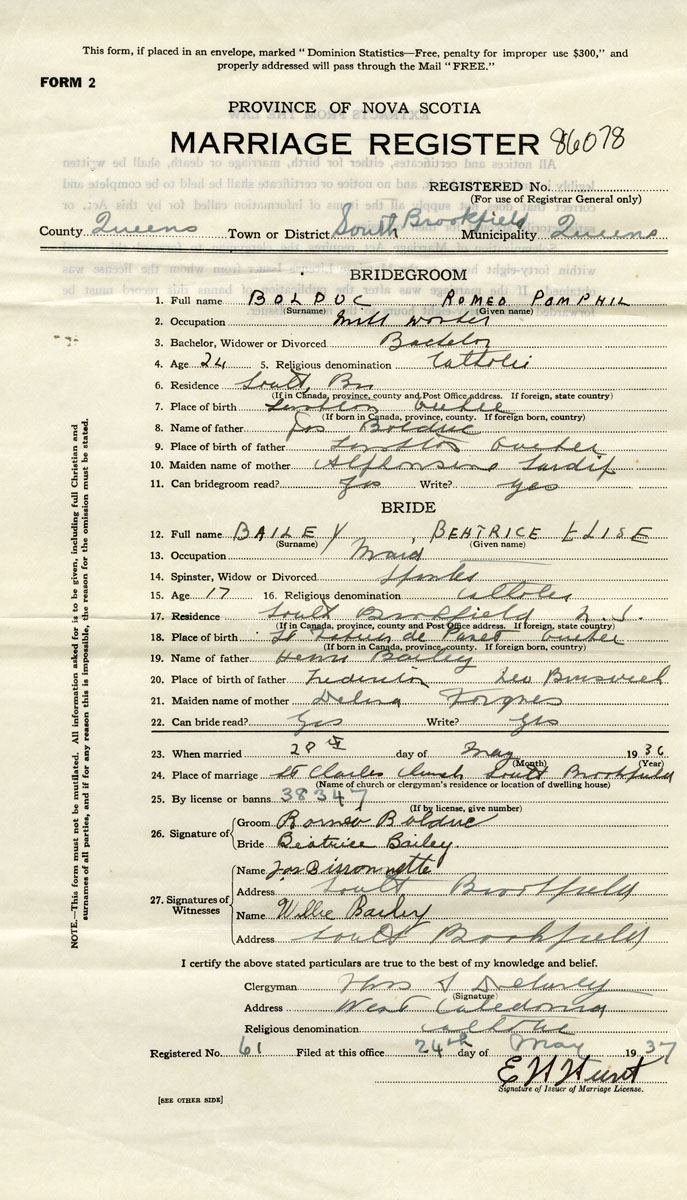 This form, if placed in an envelope, marked "Dominion Statistics—Free, penalty for improper use $300," and
properly addressed will pass through the Mail "FREE."
FORM 2
PROVINCE OF NOVA SCOTIA
MARRIAGE REGISTER 86078
REGISTERED No.
(For use of Registrar General only)
County Queens Town or District South Brookfield Municipality Queens
BRIDEGROOM
1. Full name BOLDUC ROMEO POMPHIL
(Surname) (Given name)
2. Occupation Mill worker
3. Bachelor, Widower or Divorced Bachelor
4. Age 24 5. Religious denomination Catholic
6. Residence South Bro
(If in Canada, province, county and Post Office address. If foreign, state country)
7. Place of birth Lambton Quebec
(If born in Canada, province, county. If foreign born, country)
8. Name of father Jos Bolduc
9. Place of birth of father Lambton Quebec
10. Maiden name of mother Alphonsine Tardif
11. Can bridegroom read? Yes Write? Yes
BRIDE
12. Full name BAILEY, BEATRICE ELISE
(Surname) (Given name)
13. Occupation Maid
14. Spinster, Widow or Divorced
15. Age 17 16. Religious denomination Catholic
17. Residence South Brookfield N.S.
(If in Canada, province, county and Post Office address. If foreign, state country)
18. Place of birth St de Panet Quebec
(If born in Canada, province, county. If foreign born, country)
19. Name of father Henry Bailey
20. Place of birth of father New Brunswick
21. Maiden name of mother Delina
22. Can bride read? Yes Write? Yes
23. When married 28th day of May 1936
(Month) (Year)
24. Place of marriage St Charles Church South Brookfield
(Name of church or clergyman's residence or location of dwelling house)
25. By license or banns 38347
(If by license, give number)
26. Signature of
Groom Romeo Bolduc
Bride Béatrice Bailey.
27. Signatures of Witnesses
Name Jos Bissonnette
Address South Brookfield
Name Willie Bailey
Address South Brookfield
I certify the above stated particulars are true to the best of my knowledge and belief.
Clergyman
(Signature)
Address West Caledonia
Religious denomination Catholic
Registered No. 61 Filed at this office 24th day of May 1937
E H Hunt
Signature of Issuer of Marriage License.
[SEE OTHER SIDE]
NOTE.—This form must not be mutilated. All information asked for is to be given, including full Christian and
surnames of all parties, and if for any reason this is impossible, the reason for the omission must be stated.